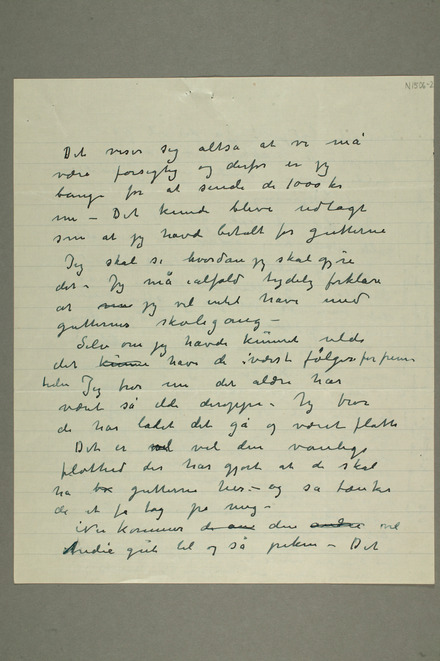 N1506-2
Det viser sig altsa at vi må
være forsigtig og derfor er jeg
bange for at sende de 1000 kr
nu – Det kunde bleve udlagt
som at jeg havd betalt for gutterne
Jeg skal se hvordan jeg skal gjøre
det – Jeg må ialfald tydelig forklare
at jeg vil intet have med
gutternes skolegang –
Selv om jeg havde kunnet vilde
det kunne have de værste følger for frem
tiden Jeg tror nu det aldri har
været så ille deroppe – Jeg tror
de har ladet det gå og været flatte
Det er vel den vanlige
flathed der har gjort at de skal
ha gutterne her – og sa tænke
de at få tag på meg –
ikke kommer den vel
til og så – Det